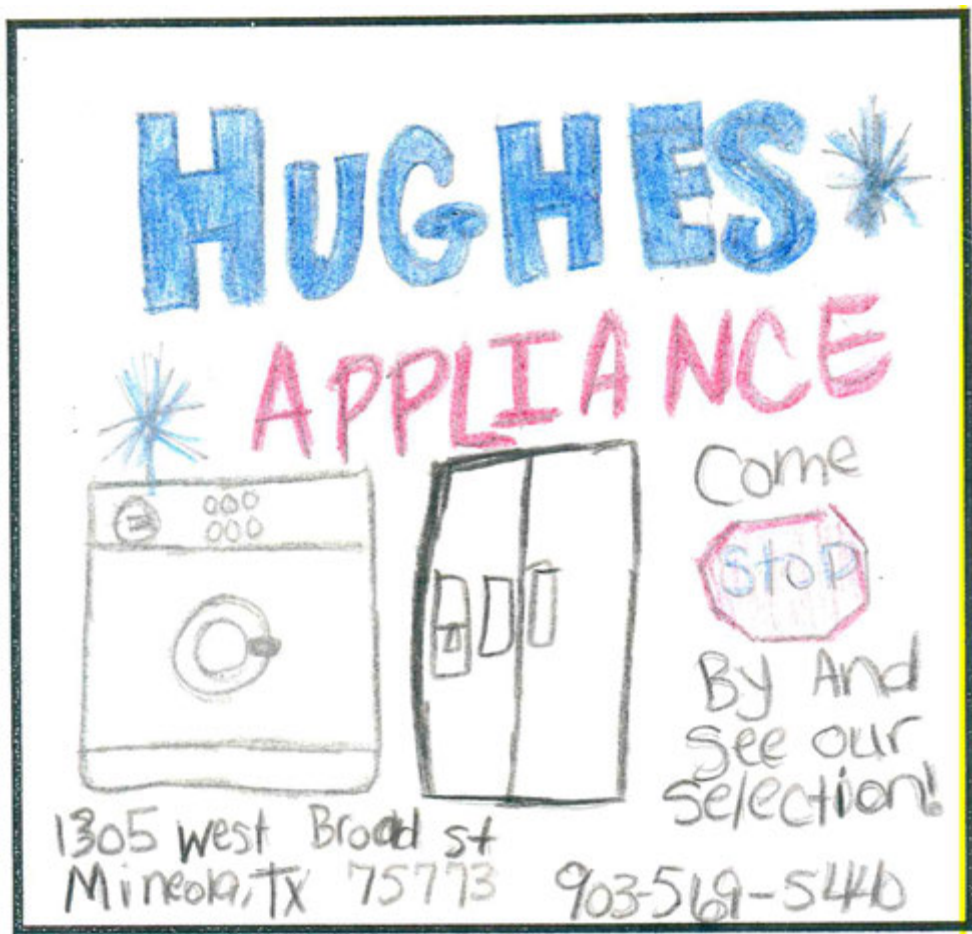 HUGHES
APPLIANCE
Come
Stop
By And
See our
Selection!
1305 West Broad st
Mineola, TX 75773
903-569-5440